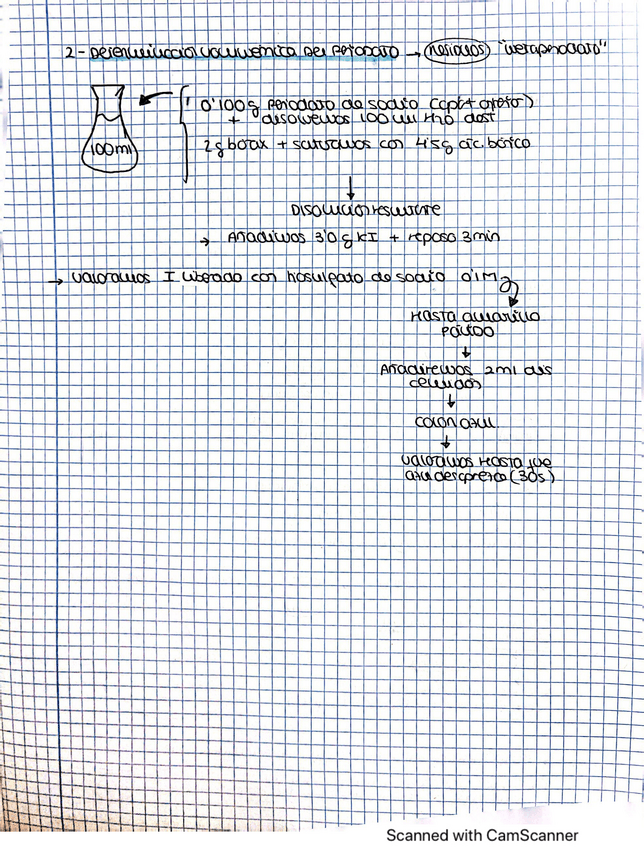 2 - Determinación volumétrica del peryodato → residuos "metaperiodato"
100ml
0'100g periodato de sodio
+ disolvemos 100 ml H2O dest
2g borax + saturamos con 4'5g ác. bórico
Disolución resultante
→ Añadimos 3'0 g KI + reposo 3min
→ valoramos I liberado con tiosulfato de sodio 0'1M
Hasta amarillo
pálido
Añadiremos 2ml dis
color azul
valoramos Hasta que
azul desaparezca (30s)
Scanned with CamScanner